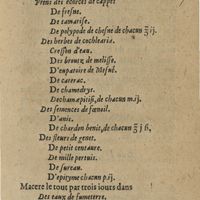 Prens des escorces de cappes
De fresne.
De tamarise.
De polypode de chesne de chacun ʒ̃ ij.
Des herbes de cochlearia.
Cresson d'eau.
Des broutz de melisse.
D'eupatoire de Mesué.
De ceterac.
De chamedrys.
De chamæpitijs, de chacun m. ij.
Des semences de fœnoil.
D'anis.
De chardon benit, de chacun ʒ̃ j ß,
Des fleurs de genet.
De petit centaure.
De mille pertuis.
De sureau.
D'epityme chacun p. ij.
Macere le tout par trois iours dans
Des eaux de fumeterre.